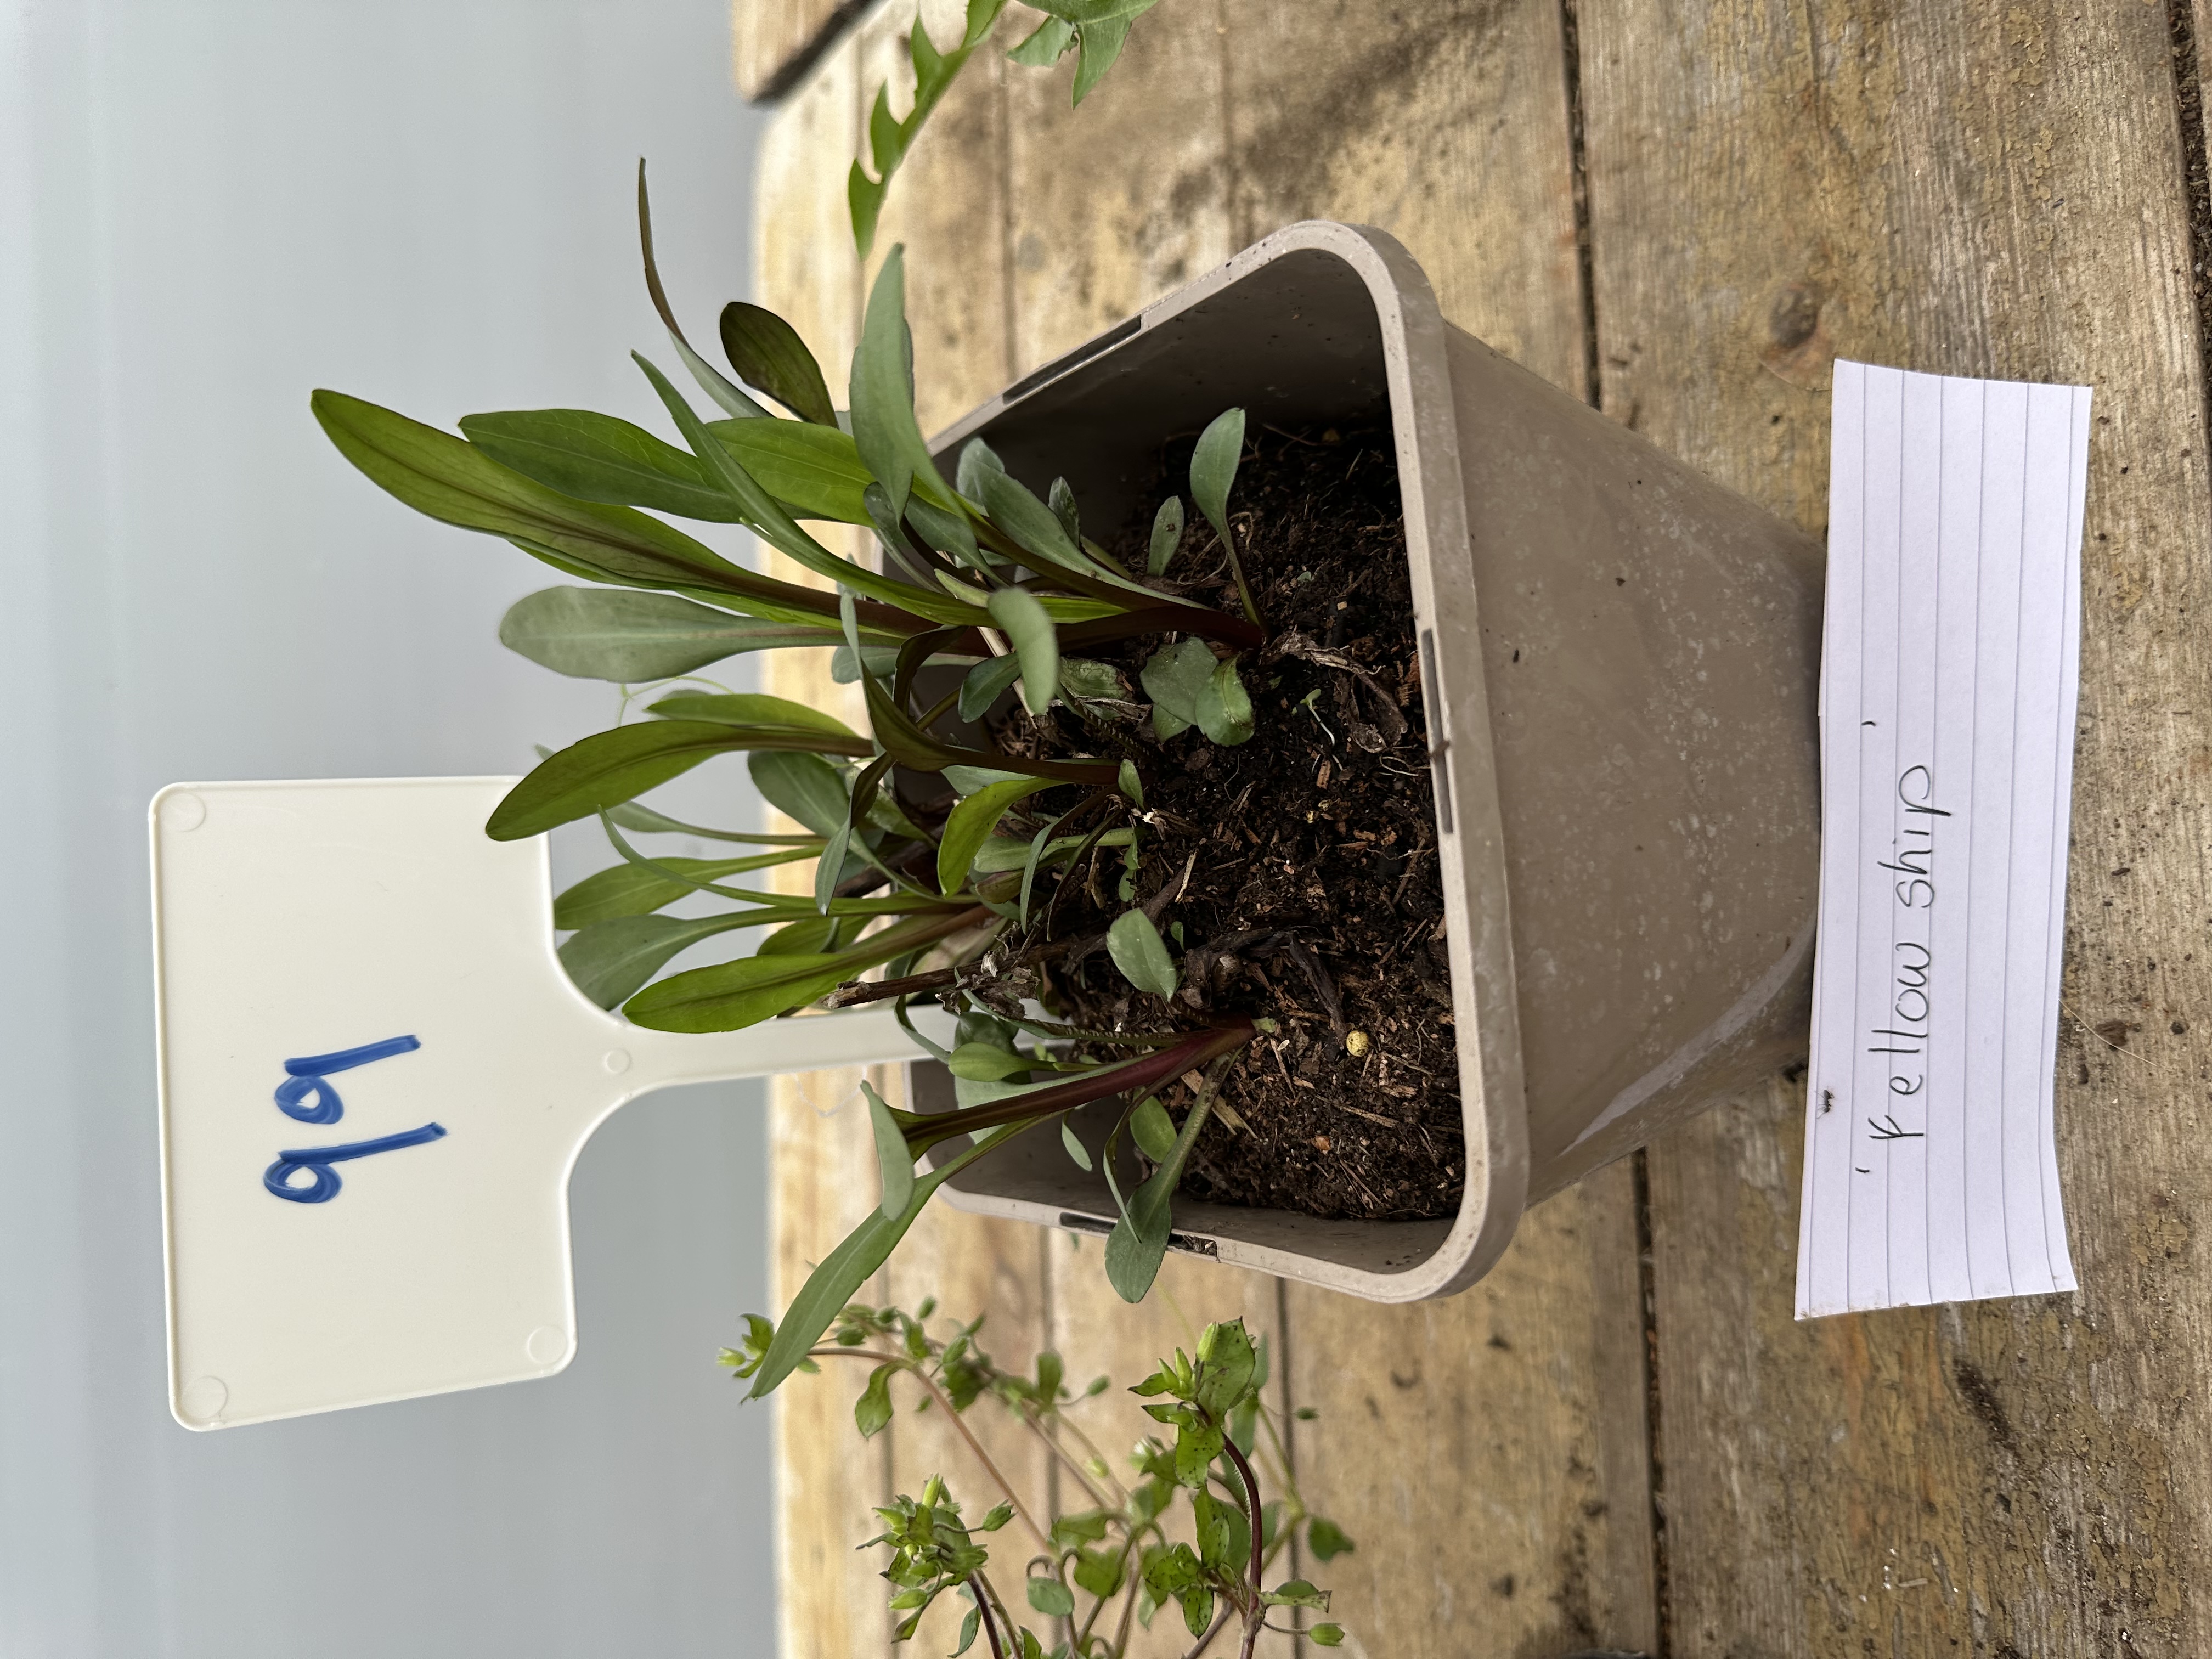 99
'Fellow ship'